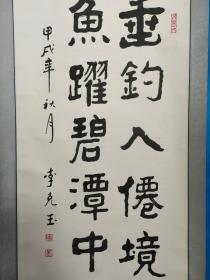 垂釣入僊境
魚躍碧潭中
甲戌年秋月
李克玉